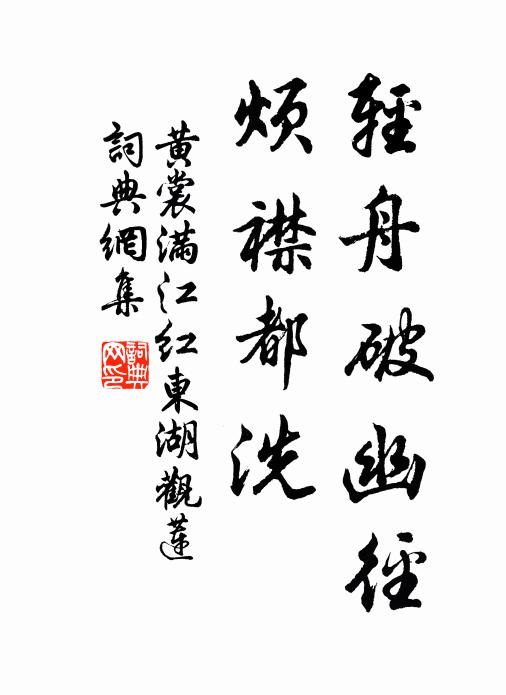 輕舟破幽徑
煩襟都洗
黃裳滿江紅東湖觀蓮
詞典網集
詞典网印